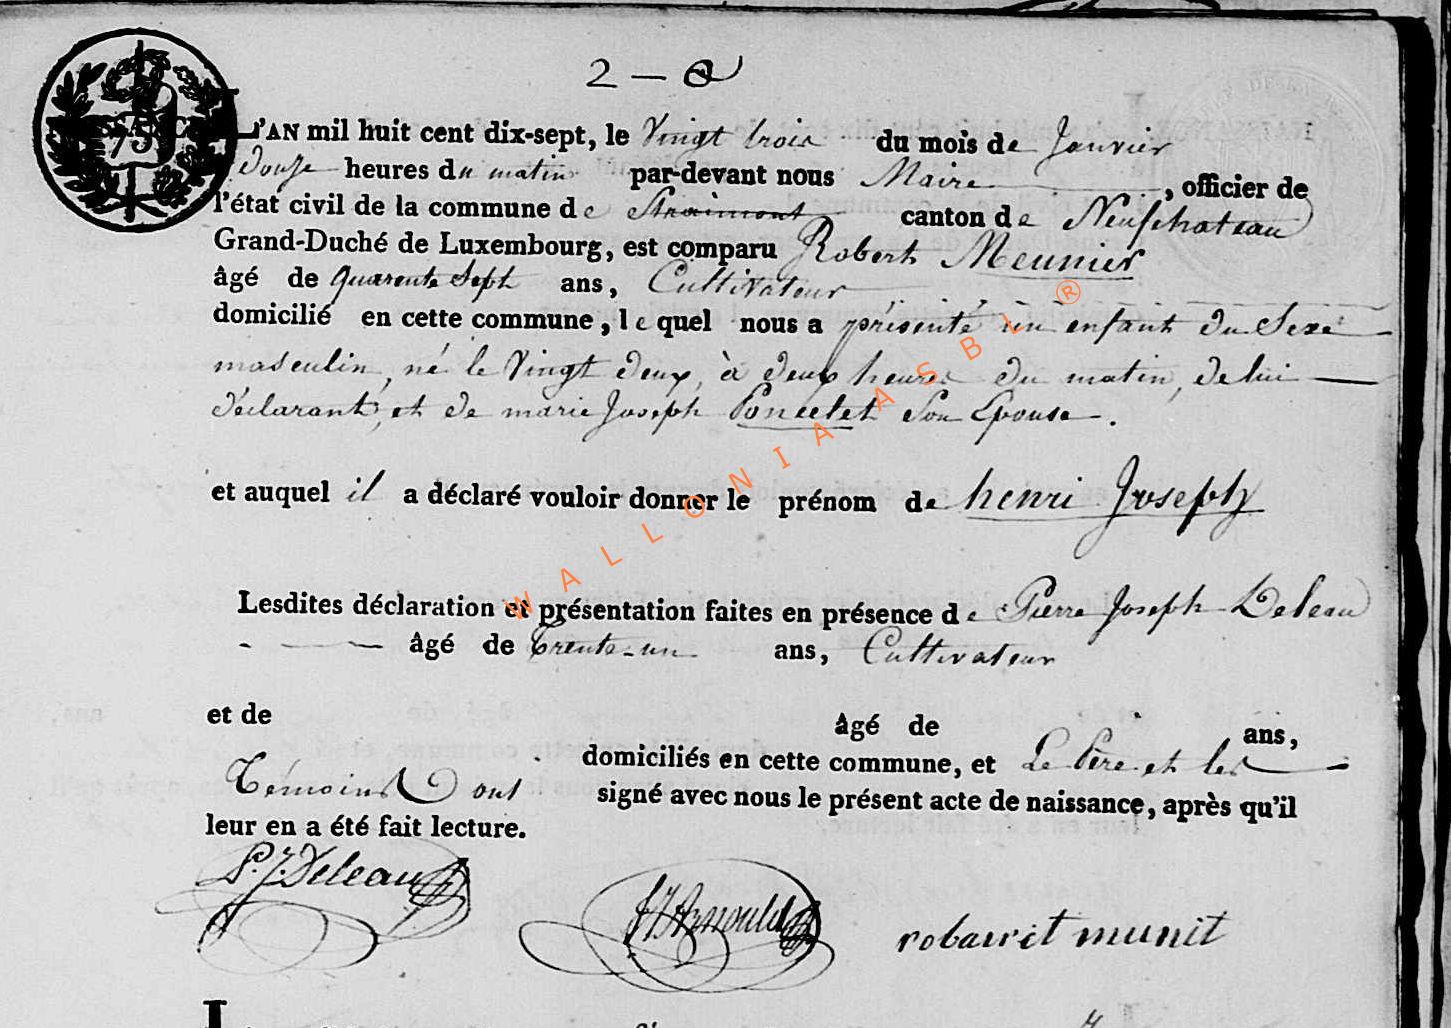 2 —
75
L'AN mil huit cent dix-sept, le Vingt trois du mois de Janvier
douze heures du matin par-devant nous Maire, officier de
l'état civil de la commune de Straimont canton de Neufchateau
Grand-Duché de Luxembourg, est comparu Robert Meunier
âgé de quarente Sept ans, Cultivateur
domicilié en cette commune, le quel nous a présenté un enfant du Sexe
masculin, né le Vingt deux, à deux heures du matin, de lui
déclarant, et de marie Joseph Poncelet Son Epouse.
et auquel il a déclaré vouloir donner le prénom de henri Joseph
Lesdites déclaration et présentation faites en présence de Pierre Joseph Deleau
âgé de trente-un ans, Cultivateur
et de âgé de ans,
domiciliés en cette commune, et Le Père et les
Témoins ont signé avec nous le présent acte de naissance, après qu'il
leur en a été fait lecture.
P. J. Deleau
Arnould
robairet munit
WALLONIA ASBL ®